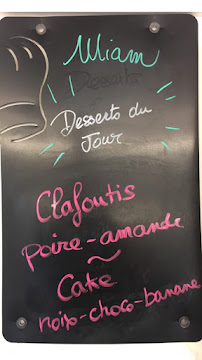 Miam
Desserts
Desserts du
Jour
Clafoutis
poire-amande
~
Cake
noix-choco-banane